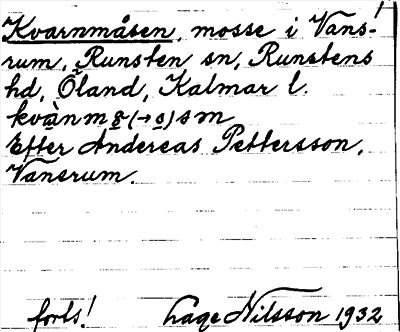 Kvarnmåsen, mosse i Vans-
rum, Runsten sn, Runstens
hd, Öland, Kalmar l.
Efter Andereas Pettersson,
Vansrum.
forts! Lage Nilsson 1932